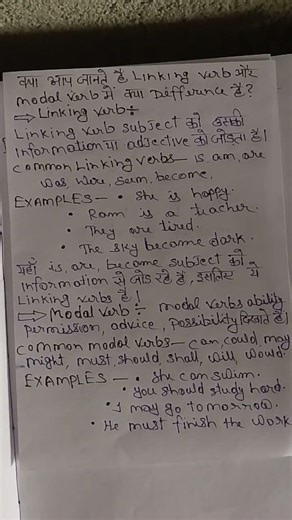 क्या आप जानते है Linking verb और
modal verb में क्या Difference है?
⇒ Linking verb÷
Linking verb subject को उसकी
Information या adjective को जोड़ता है।
common Linking verbs— is, am, are
was, were, seem, become.
EXAMPLES — • She is happy.
• Ram is a teacher.
• They are tired.
• The sky become dark.
यहाँ is, are, become subject को
Information से जोड़ रहे है, इसलिए ये
Linking verbs है।
⇒ Modal verb ÷ modal verbs ability
Permission, advice, possibility दिखाते है।
common modal verbs— can, could, may
might, must, should, shall, will, woud.
EXAMPLES — • She can swim.
• you should study hard.
• I may go tomorrow.
• He must finish the work